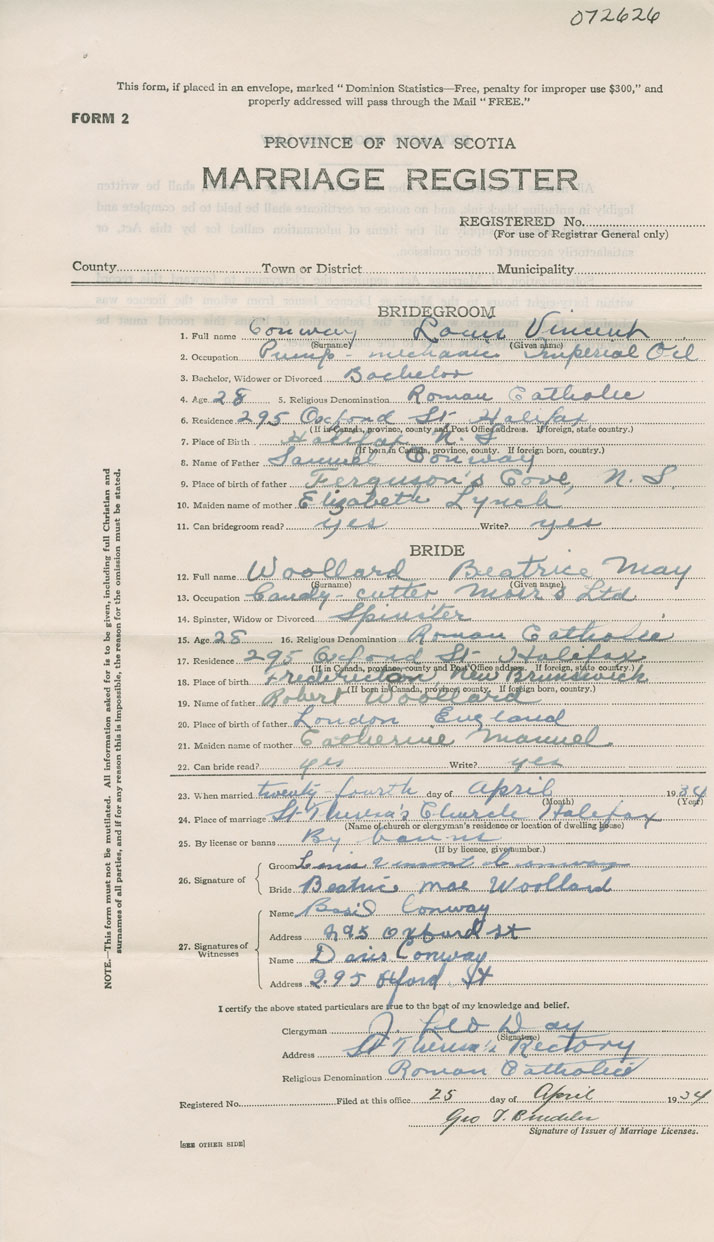 072626
This form, if placed in an envelope, marked "Dominion Statistics—Free, penalty for improper use $300," and
properly addressed will pass through the Mail "FREE."
FORM 2
PROVINCE OF NOVA SCOTIA
MARRIAGE REGISTER
REGISTERED No.
(For use of Registrar General only)
County Town or District Municipality
BRIDEGROOM
1. Full name Conway Louis Vincent
(Surname) (Given name)
2. Occupation Pump-mechanic Imperial Oil
3. Bachelor, Widower or Divorced Bachelor
4. Age 28 5. Religious Denomination Roman Catholic
6. Residence 295 Oxford St Halifax
(If in Canada, province, county and Post Office address. If foreign, state country.)
7. Place of Birth Halifax N. S
(If born in Canada, province, county. If foreign born, country.)
8. Name of Father Samuel Conway
9. Place of birth of father Ferguson's Cove, N. S.
10. Maiden name of mother Elizabeth Lynch
11. Can bridegroom read? yes Write? yes
BRIDE
12. Full name Woollard Beatrice May
(Surname) (Given name)
13. Occupation Candy-cutter Moir's Ltd
14. Spinster, Widow or Divorced Spinster
15. Age 28 16. Religious Denomination Roman Catholic
17. Residence 295 Oxford St Halifax
(If in Canada, province, county and Post Office address. If foreign, state country.)
18. Place of birth Fredericton New Brunswick
(If born in Canada, province, county. If foreign born, country.)
19. Name of father Robert Woollard
20. Place of birth of father London England
21. Maiden name of mother Catherine Manuel
22. Can bride read? yes Write? yes
23. When married twenty-fourth day of April 1934
(Month) (Year)
24. Place of marriage St Theresa's Church Halifax
(Name of church or clergyman's residence or location of dwelling house)
25. By license or banns By banns
(If by licence, give number.)
26. Signature of
Groom Louis Vincent Conway
Bride Beatrice mae Woollard
27. Signatures of Witnesses
Name Basil Conway
Address 295 Oxford St
Name Doris Conway
Address 295 Oxford St
I certify the above stated particulars are true to the best of my knowledge and belief.
Clergyman J. Leo Day
(Signature)
Address St Theresa's Rectory
Religious Denomination Roman Catholic
Registered No. Filed at this office 25 day of April 1934
Geo T.
Signature of Issuer of Marriage Licenses.
[SEE OTHER SIDE]
NOTE.—This form must not be mutilated. All information asked for is to be given, including full Christian and
surnames of all parties, and if for any reason this is impossible, the reason for the omission must be stated.